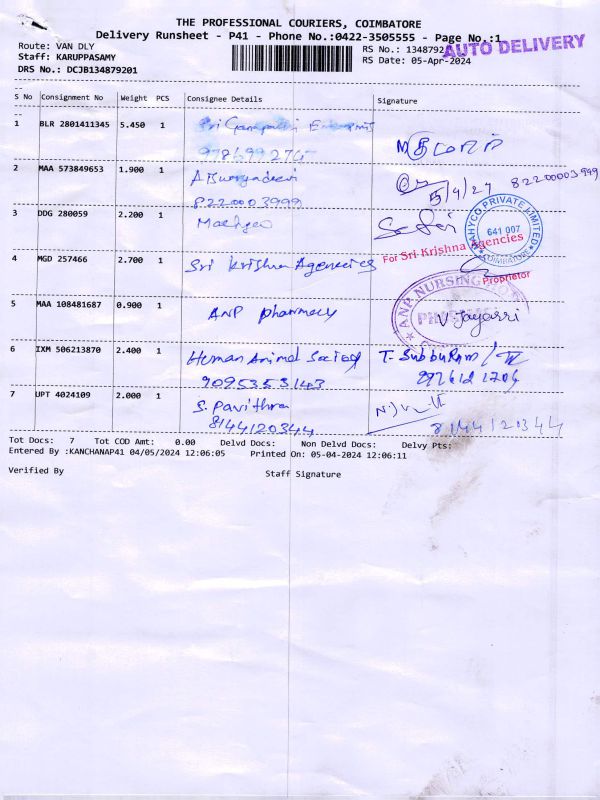 THE PROFESSIONAL COURIERS, COIMBATORE
Delivery Runsheet - P41 - Phone No.:0422-3505555 - Page No.:1
Route: VAN DLY
Staff: KARUPPASAMY
DRS No.: DCJB134879201
RS No.: 1348792
RS Date: 05-Apr-2024
AUTO DELIVERY
S No Consignment No Weight PCS Consignee Details Signature
1 BLR 2801411345 5.450 1 Sri
2 MAA 573849653 1.900 1
8220003999
5/4/24 8220003999
3 DDG 280059 2.200 1
PRIVATE LIMITED
641 007
COIMBATORE
4 MGD 257466 2.700 1 Sri Krishna Agencies
For Sri Krishna Agencies
Proprietor
5 MAA 108481687 0.900 1 ANP Pharmacy
ANP NURSING
V Jayasri
6 IXM 506213870 2.400 1 Human Animal Society
9095353143
T. Subburam
7 UPT 4024109 2.000 1 S. Pavithra
8144120344
8144120344
Tot Docs: 7 Tot COD Amt: 0.00 Delvd Docs: Non Delvd Docs: Delvy Pts:
Entered By :KANCHANAP41 04/05/2024 12:06:05 Printed On: 05-04-2024 12:06:11
Verified By Staff Signature